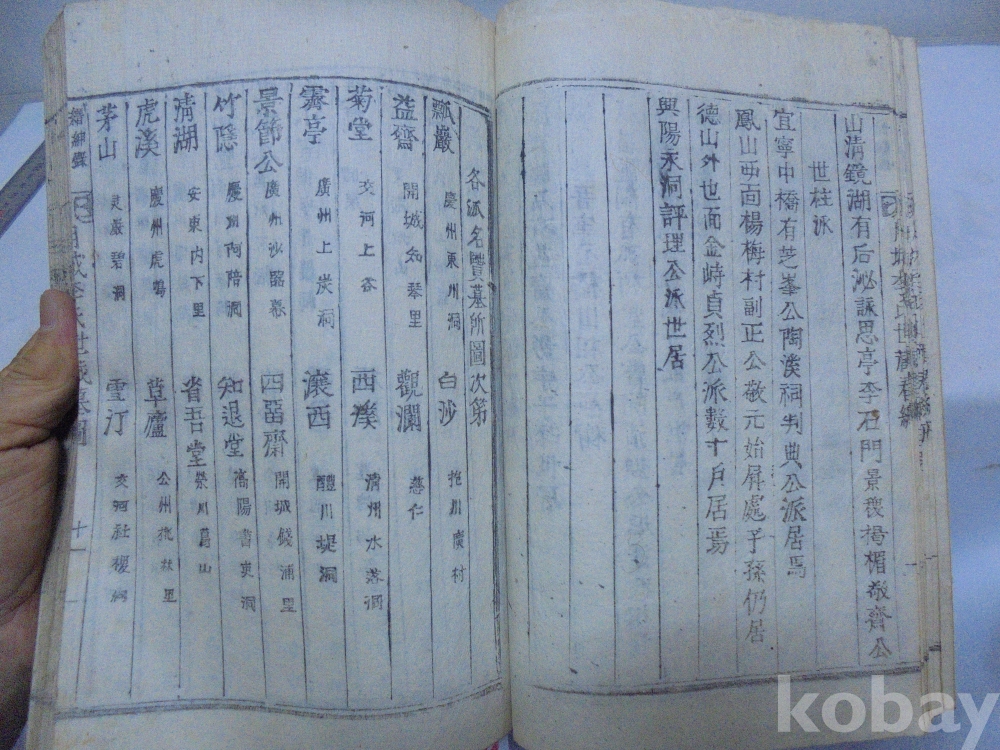 山清鏡湖有后泌詠思亭李石門景稷揭楣敬齊公
世柱派
宜寧中橋有芝峯公陶溪祠判典公派居焉
鳳山西面楊梅村副正公敬元始屛處子孫仍居
德山外世面金峙貞烈公派數十戶居焉
興陽永洞評理公派世居
各派名賢墓所圖次第
瓢巖 慶州東川洞 白沙 抱川廣村
益齋 開城知琴里 觀瀾 慈仁
菊堂 交河上谷 西溪 清州水落洞
霽亭 廣州上炭洞 瀼西 醴川堤洞
景節公 廣州沙 四留齋 開城錢浦里
竹隱 慶州阿陪洞 知退堂 高陽書吏洞
清湖 安東內下里 省吾堂 榮川葛山
虎溪 慶州虎鳴 草廬 公州
茅山 靈巖碧洞 雪汀 交河社稷洞
十一
kobay